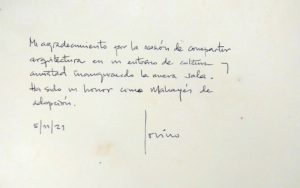 Mi agradecimiento por la ocasión de compartir
arquitectura en un entorno de cultura y
amistad inaugurando la nueva sala.
Ha sido un honor como Malagués de
adopción.
5/11/21